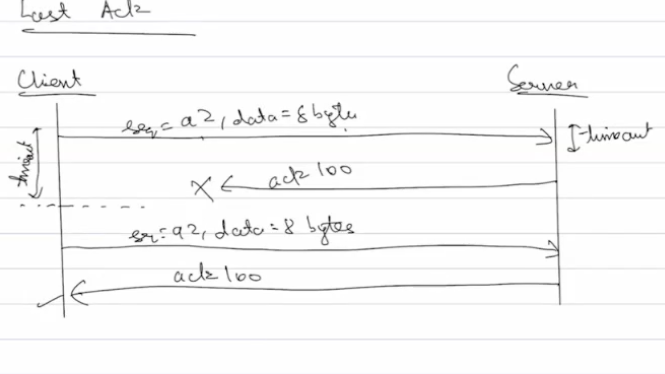 Lost Ack
Client
Server
seq = 92, data = 8 bytes
timeout
timeout
ack 100
X
seq = 92, data = 8 bytes
ack 100